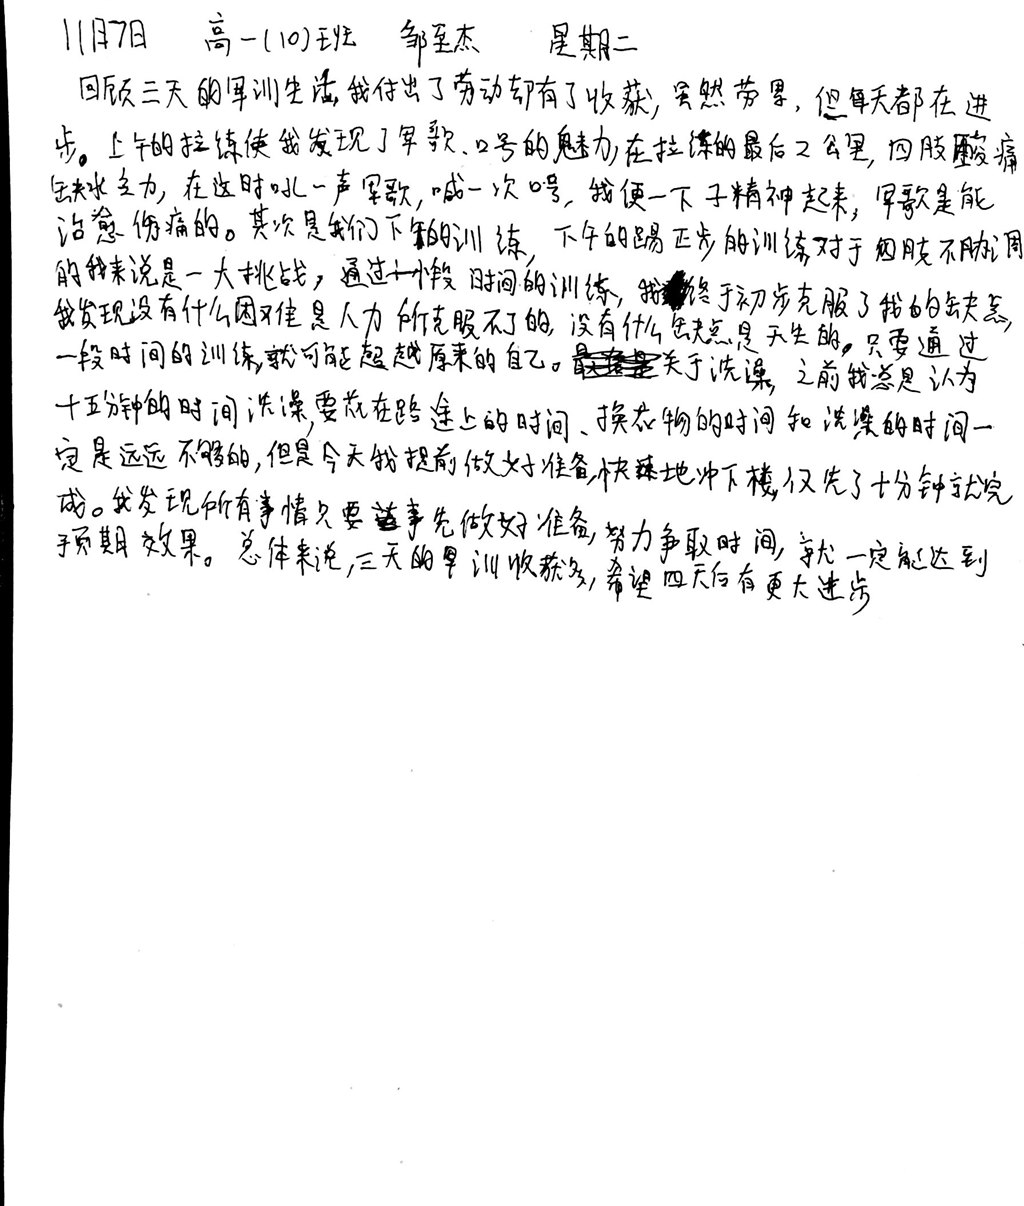 11月7日 高一(10)班 邹至杰 星期二
回顾三天的军训生活,我付出了劳动却有了收获,虽然劳累,但每天都在进
步。上午的拉练使我发现了军歌、口号的魅力,在拉练的最后2公里,四肢酸痛
缺水乏力,在这时吼一声军歌,喊一次口号,我便一下子精神起来,军歌是能
治愈伤痛的。其次是我们下午的训练,下午的踢正步的训练对于四肢不协调
的我来说是一大挑战,通过一小段时间的训练,我终于初步克服了我的缺点,
我发现没有什么困难是人力所克服不了的,没有什么缺点是天生的。只要通过
一段时间的训练,就可能超越原来的自己。关于洗澡,之前我总是认为
十五分钟的时间洗澡,要花在路途上的时间、换衣物的时间和洗澡的时间一
定是远远不够的,但是今天我提前做好准备,快速地冲下楼,仅洗了十分钟就完
成。我发现所有事情只要事先做好准备,努力争取时间,就一定能达到
预期效果。总体来说,三天的军训收获多,希望四天后有更大进步